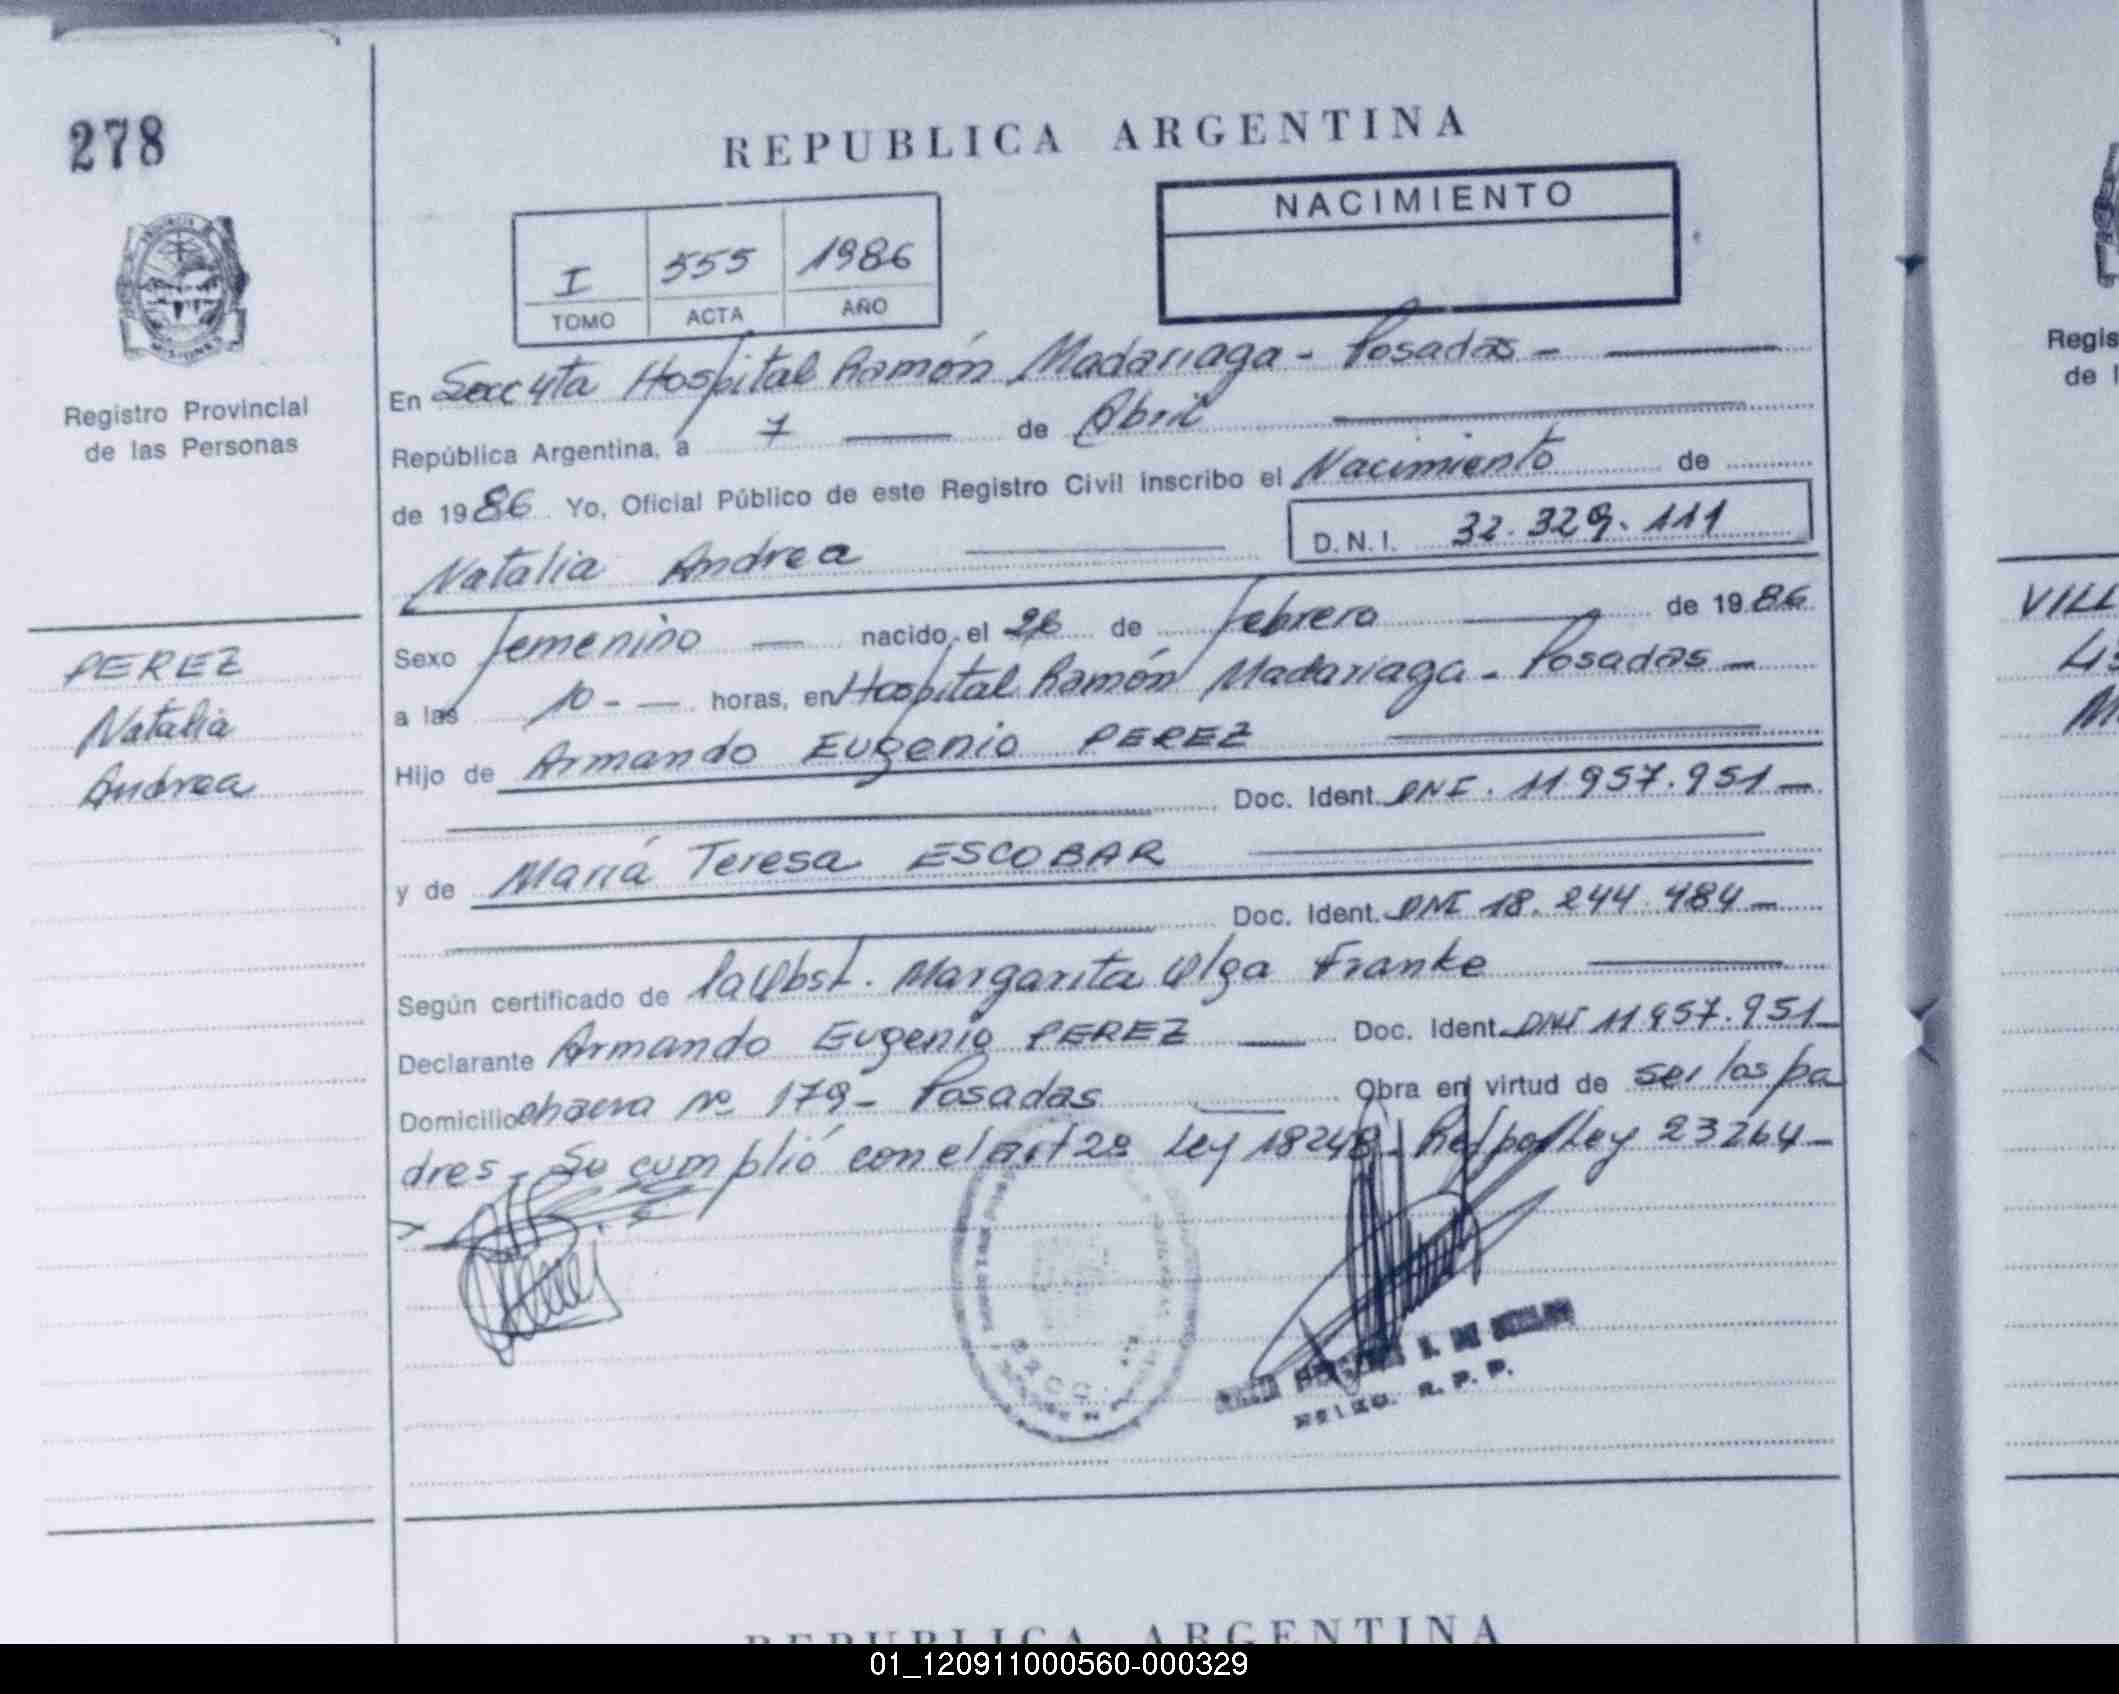 278
REPUBLICA ARGENTINA
NACIMIENTO
I 555 1986
TOMO ACTA AÑO
Registro Provincial
de las Personas
PEREZ
Natalia
Andrea
En Secc 4ta Hospital Ramón Madariaga - Posadas -
República Argentina, a 7 de Abril
de 1986 Yo, Oficial Público de este Registro Civil inscribo el Nacimiento de
Natalia Andrea D.N.I. 32.329.111
Sexo femenino nacido el 26 de febrero de 1986
a las 10 - horas, en Hospital Ramón Madariaga - Posadas -
Hijo de Armando Eugenio PEREZ
Doc. Ident. DNI. 11957.951 -
y de María Teresa ESCOBAR
Doc. Ident. DNI 18.244.484 -
Según certificado de la Obst. Margarita Olga Franke
Declarante Armando Eugenio PEREZ Doc. Ident. DNI 11957.951 -
Domicilio chacra nº 179 - Posadas Obra en virtud de ser los pa
dres - Se cumplió con el art 2º Ley 18248 - Ref por Ley 23264 -
R. P. P.
Regis
de l
VILL
REPUBLICA ARGENTINA
01_120911000560-000329